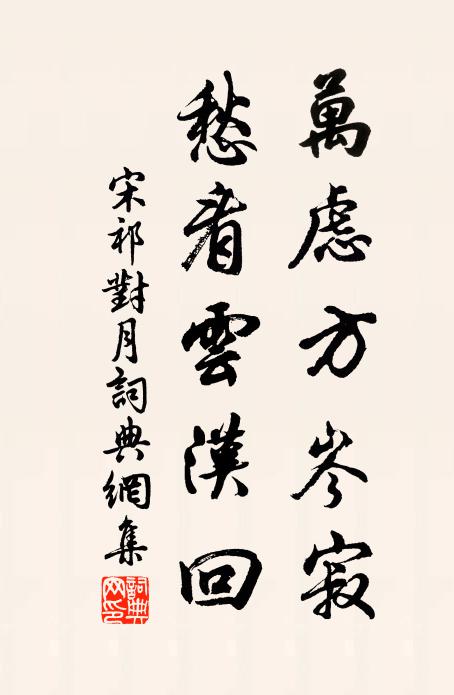 萬慮方岑寂
愁看雲漢回
宋祁對月詞典網集
詞典网印